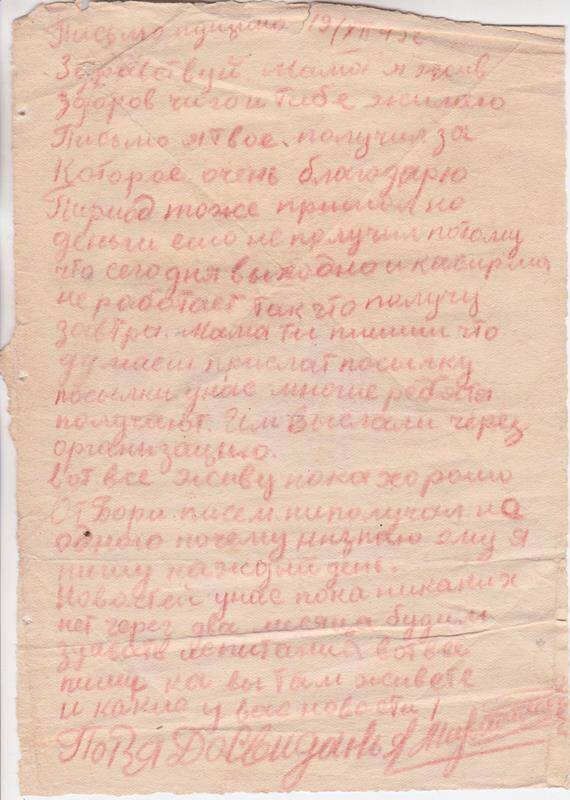 Письмо пущено 19/XII 43г
Здравствуй мама я жив
здоров чиго и тибе жилаю
Письмо я твое получил за
Которое очень благодарю
Пиривод тоже пришол но
деньги ешо не получил потому
что сегодня выходно и касирша
не работает так что получу
завтра. Мама ты пишиш что
думаеш прислат посылку
посылки унас многие ребята
получают. Им выслали через
организацыю.
вот все живу пока хорошо
От Бори писем ниполучал не
одного почему низнаю ему я
пишу каждый день.
Новостей унас пока никаких
нет через два месяца будим
здавать испытаний вот все
пиши ка вы там живете
и какие у вас новости!
Досвиданья